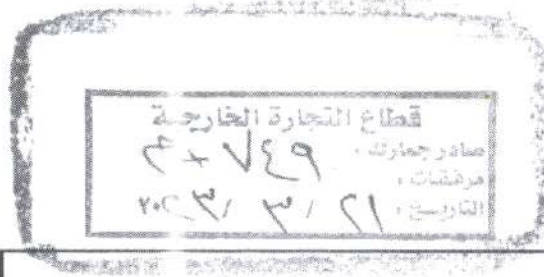 قطاع التجارة الخارجية
صادر جمارك : ٧٤٩
مرفقات :
التاريخ : ٢١ / ٣ / ٢٠٢٣